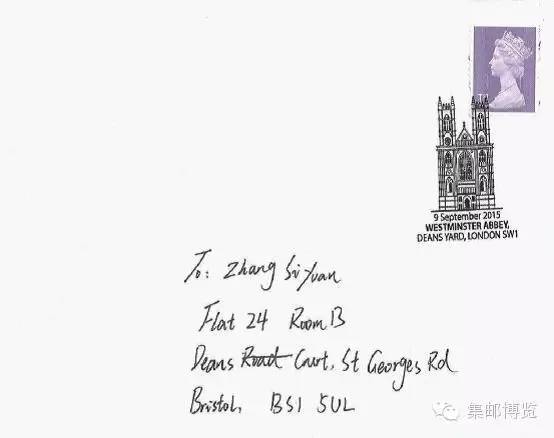 9 September 2015
WESTMINSTER ABBEY,
DEANS YARD, LONDON SW1
To: Zhang Si Yuan
Flat 24 Room B
Deans Road Court, St Georges Rd
Bristol, BS1 5UL
集邮博览